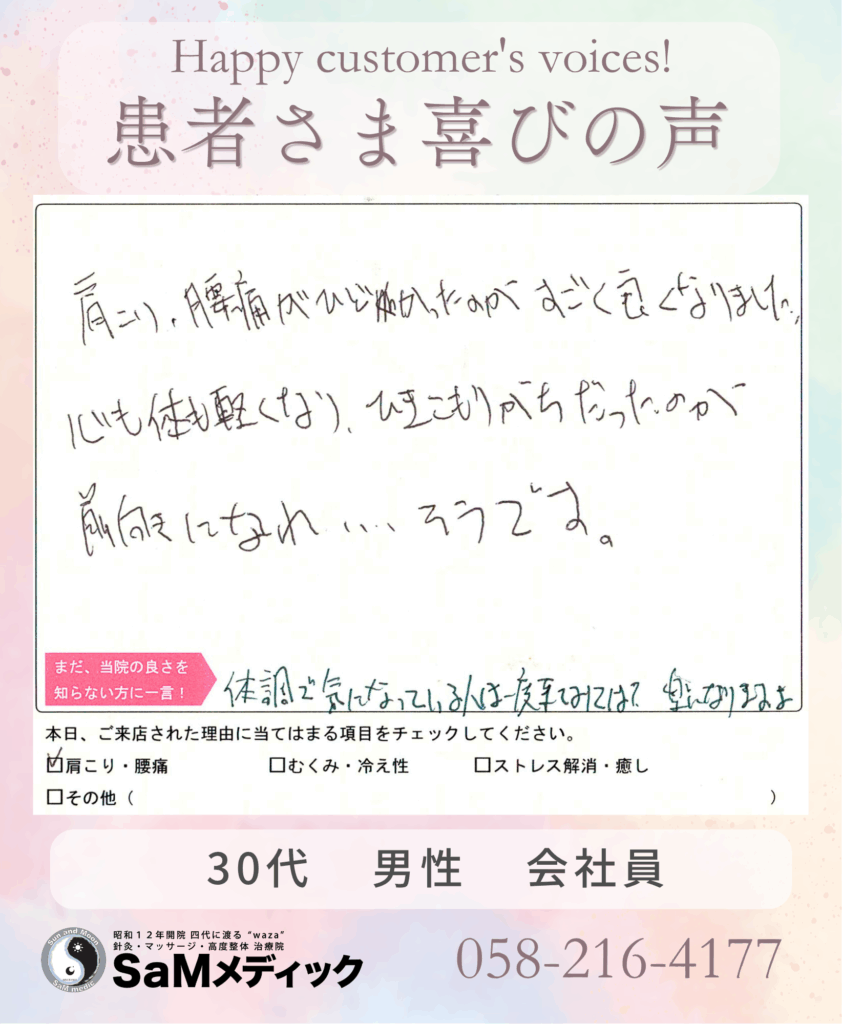 Happy customer's voices!
患者さま喜びの声
肩こり、腰痛がひどかったのが すごく良くなりました。
心も体も軽くなり、ひきこもりがちだったのが
前向きになれ・・・・そうです。
まだ、当院の良さを
知らない方に一言！
体調で気になっている人は一度来てみては? 楽になりますよ
本日、ご来店された理由に当てはまる項目をチェックしてください。
☑肩こり・腰痛 □むくみ・冷え性 □ストレス解消・癒し
□その他（ ）
30代 男性 会社員
Sun and Moon
SaM medic
昭和１２年開院 四代に渡る “waza”
針灸・マッサージ・高度整体 治療院
SaMメディック
058-216-4177